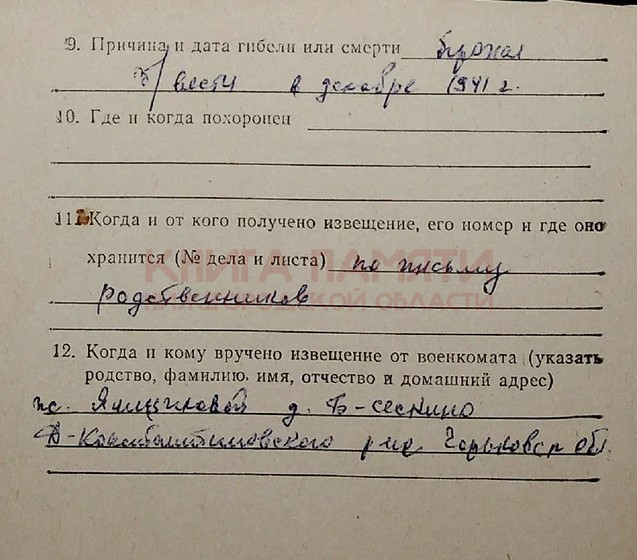 9. Причина и дата гибели или смерти
б/вести в декабре 1941 г.
10. Где и когда похоронен
11. Когда и от кого получено извещение, его номер и где оно
хранится (№ дела и листа) по письму
родственников
КНИГА ПАМЯТИ
НИЖЕГОРОДСКОЙ ОБЛАСТИ
12. Когда и кому вручено извещение от военкомата (указать
родство, фамилию, имя, отчество и домашний адрес)
д. Б-сескино
Д-Константиновского р-на Горьковск обл.